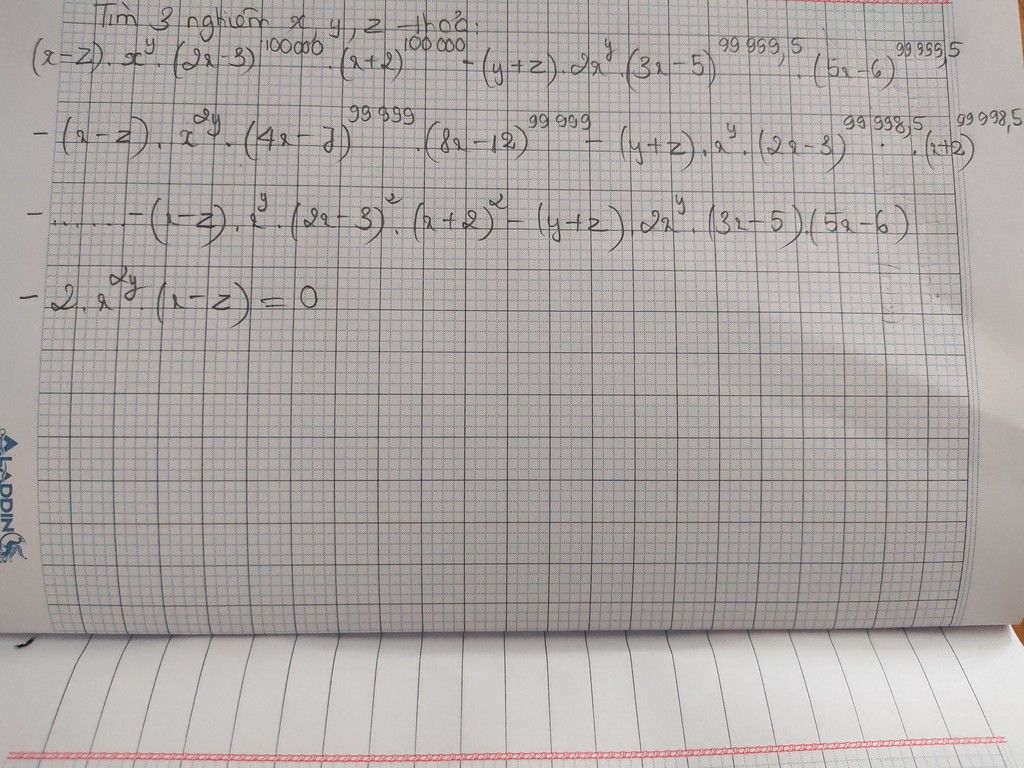 Tìm 3 nghiệm x y, z thoả:
(x-z).x^y.(2x-3)^100000.(x+2)^100000-(y+z).2x^y.(3x-5)^99999,5.(5x-6)^99999,5
-(x-z).x^2y.(4x-7)^99999.(8x-12)^99999-(y+z).x^y.(2x-3)^99998,5..(x+2)^99998,5
-........-(x-z).x^y.(2x-3)^2.(x+2)^2-(y+z).2x^y.(3x-5).(5x-6)
-2.x^2y.(x-z)=0
ALADDIN